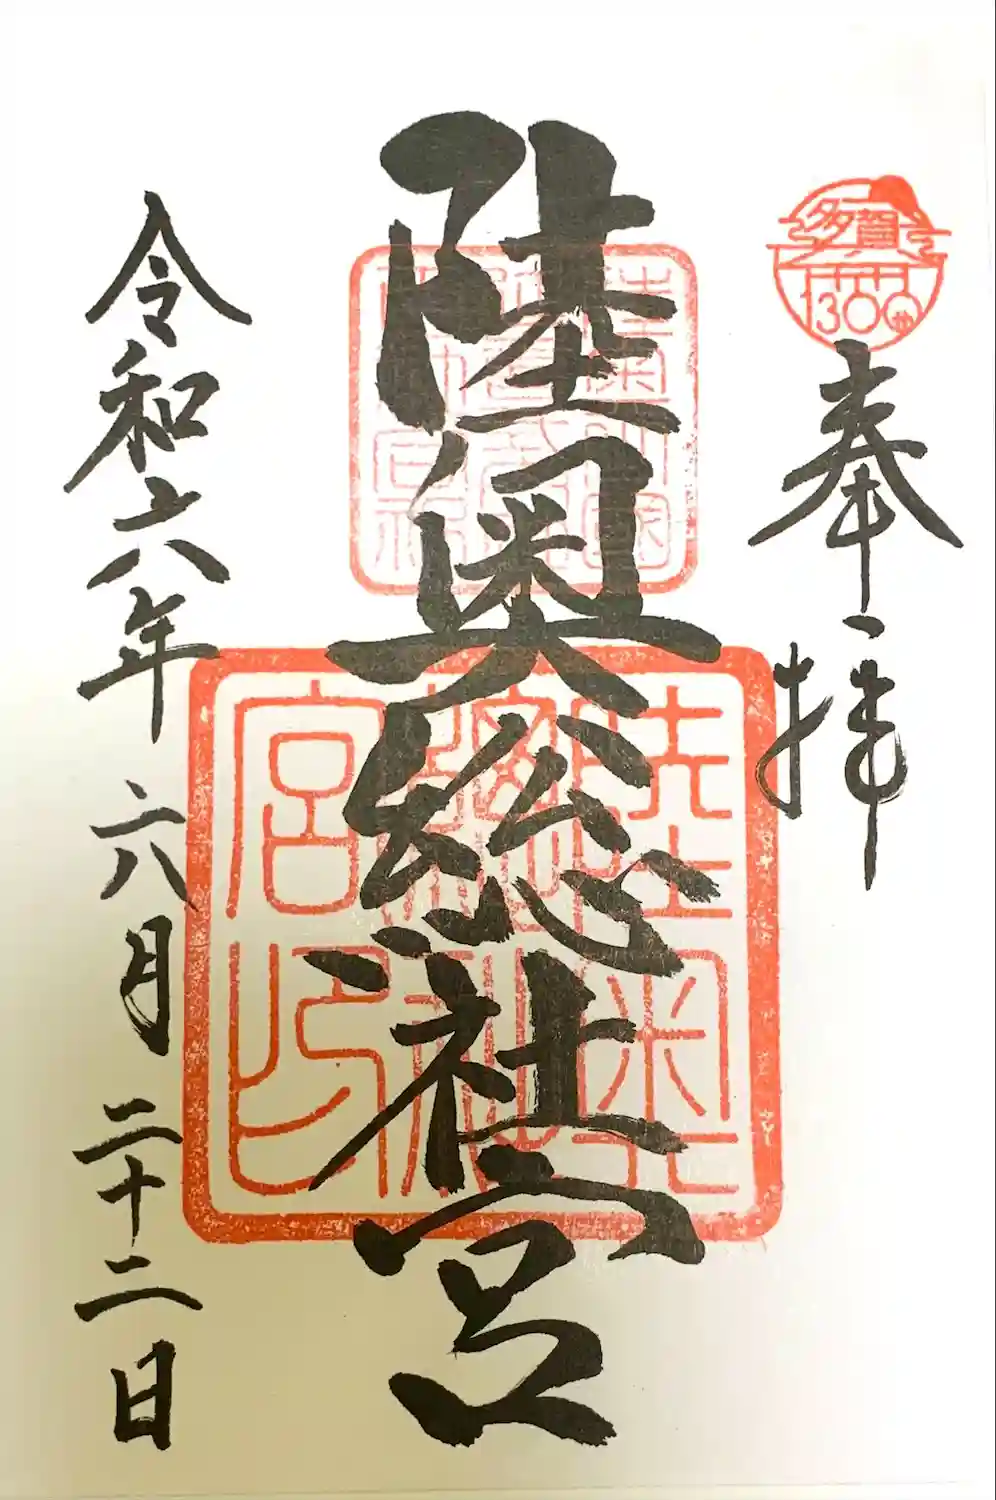 多賀城
1300年
奉拝
陸奥総社宮
陸奥總社宮印
令和六年六月二十二日